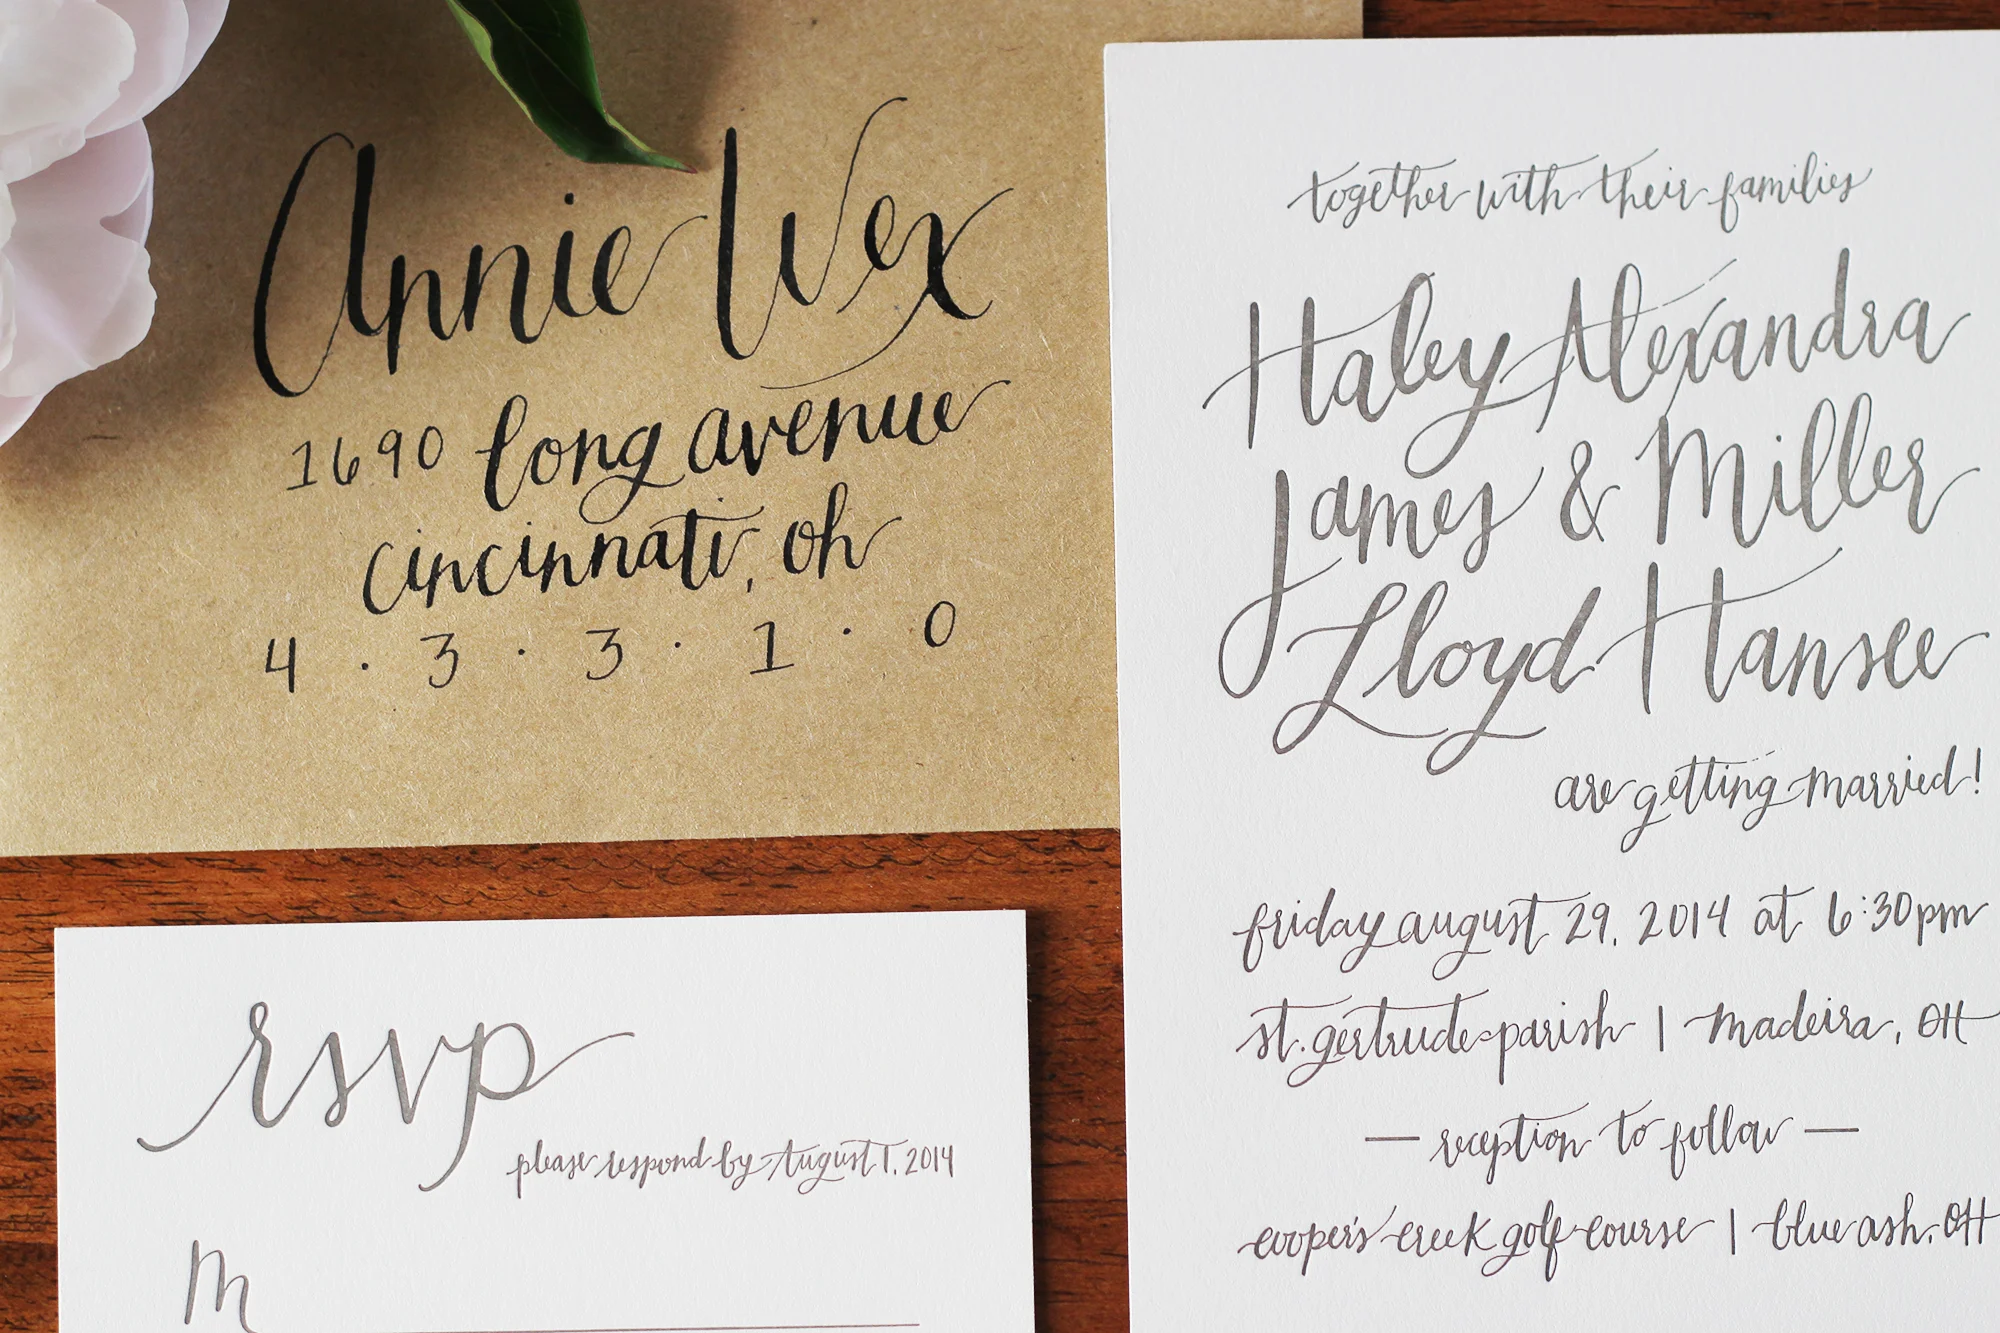 Annie Wex
1690 long avenue
cincinnati, oh
4 · 3 · 3 · 1 · 0
together with their families
Haley Alexandra
James & Miller
Lloyd Hansee
are getting married!
friday august 29, 2014 at 6:30pm
st. gertrude parish | madeira, OH
— reception to follow —
cooper's creek golf course | blue ash, OH
rsvp
please respond by August 1, 2014
M